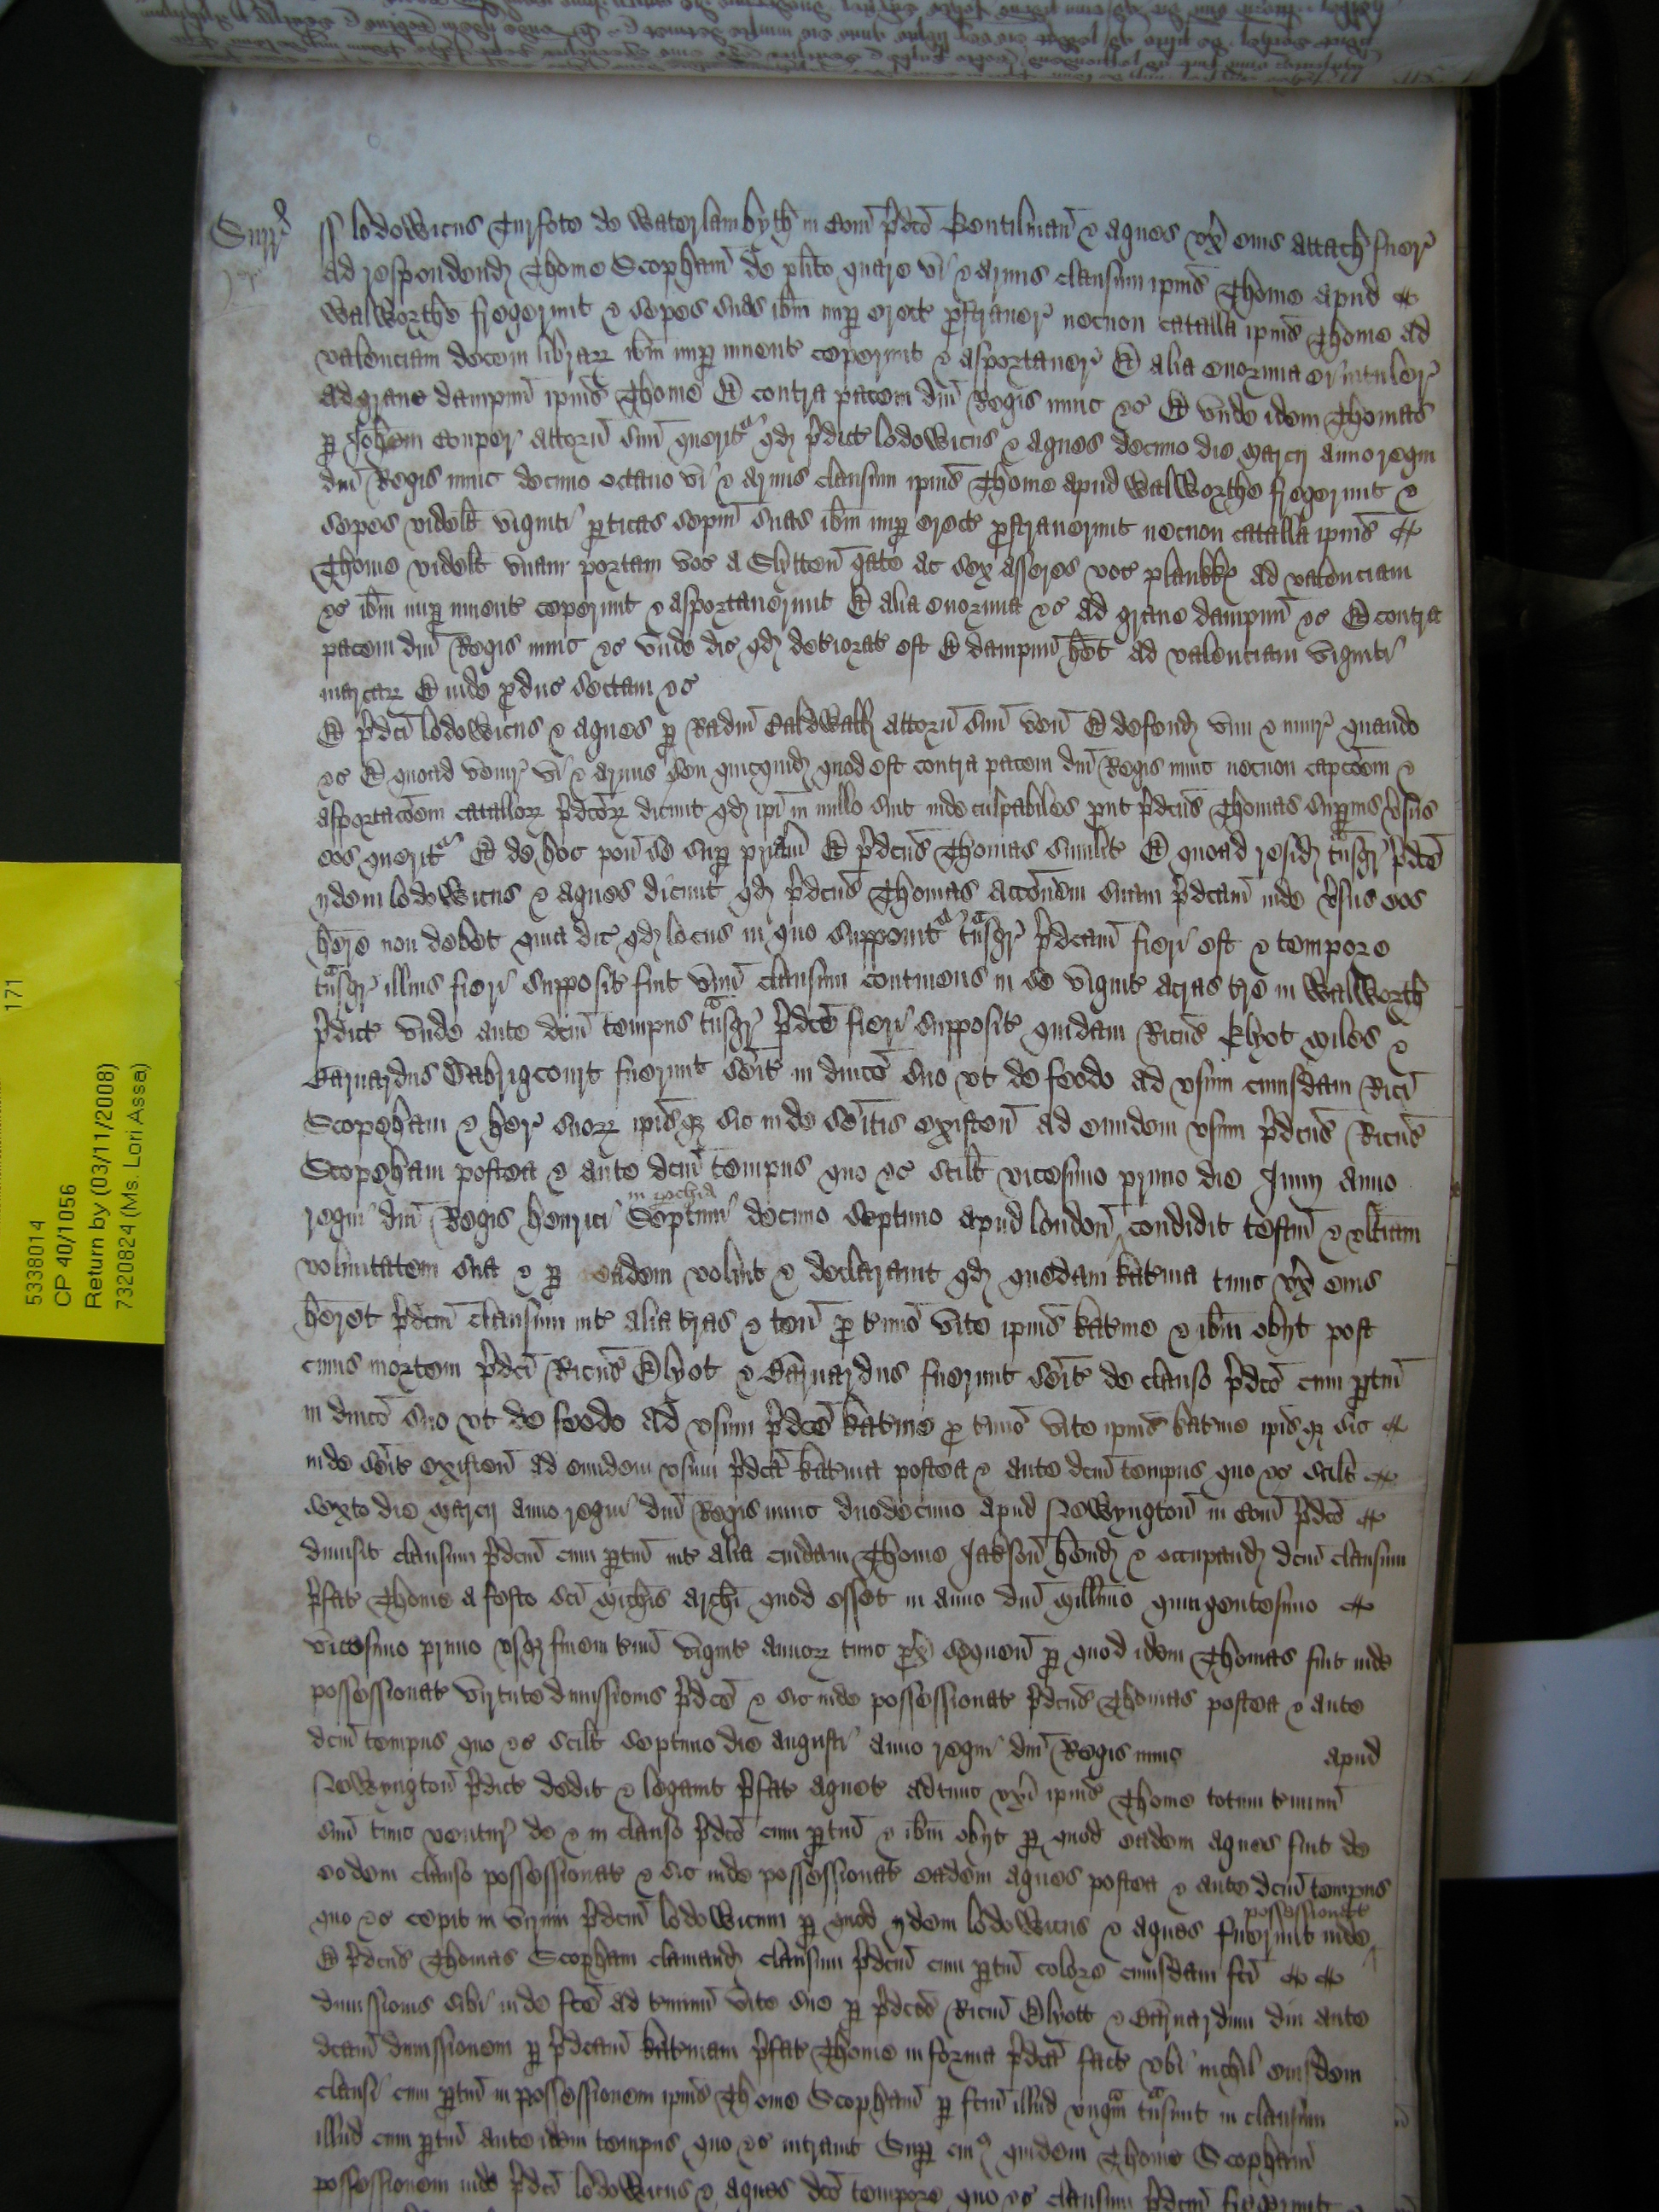 Surr
ss lodowicus Turfote de Waterlambyth in Com p̄dc̄o Gentilman̄ & Agnes vx̄ eius attach fuer
ad respondend Thome Scopham̄ de pl̄ito quare vi & armis clausum ip̄ius Thome apud
Walworthe fregerunt & sepes suas ib̄m nup erect prostrauer necnon catalla ip̄ius Thome ad
valenciam decem librar ib̄m nup inuent ceperunt & asportauer Et alia enormia ei intuler
ad graue dampnū ip̄ius Thome Et contra pacem dn̄i Regis nunc &c Et vnde idem Thomas
p Joh̄em Couper attorn̄ suū querit qd p̄dict lodowicus & Agnes decimo die Marcij anno regni
dn̄i Regis nunc decimo octauo vi & armis clausum ip̄ius Thome apud Walworthe fregerunt &
sepes videlt viginti perticas sepiū suas ib̄m nup erect prostrauerunt necnon catalla ip̄ius
Thome videlt vnam portam voc a Slytten gate ac sex asseres voc plankk ad valenciam
&c ib̄m nup inuent ceperunt & asportauerunt Et alia enormia &c ad graue dampnū &c Et contra
pacem dn̄i Regis nunc &c vnde dic qd deteriorat est Et dampnū h̄et ad valenciam viginti
marcar Et inde produc sectam &c
Et p̄dc̄i lodowicus & Agnes p Radm̄ Caldwall attorn̄ suū ven̄ Et defend vim & iniur quando
&c Et quoad venir vi & armis seu quicquid quod est contra pacem dn̄i Regis nunc necnon capc̄oem &
asportac̄oem catallor p̄dc̄or dicunt qd ip̄i in nullo sunt inde culpabiles prout p̄dc̄us Thomas superius v̄sus
eos querit Et de hoc pon̄ se sup pr̄iam Et p̄dc̄us Thomas similit Et quoad resid tnsgr p̄dc̄e
ijdem lodowicus & Agnes dicunt qd p̄dc̄us Thomas acc̄onem suam p̄dc̄am inde v̄sus eos
h̄ere non debet quia dic qd locus in quo supponit tnsgr p̄dc̄am fieri est & tempore
tnsgr illius fieri supposit fuit vnū clausum continens in se vigint acras t̄re in Walworth
p̄dict vnde ante dc̄m tempus tnsgr p̄dc̄e fieri supposit quidam Ric̄us Elyot Miles &
Barnardus Dabrigcourt fuerunt sēit in dn̄ico suo vt de feodo ad vsum cuiusdam Ric̄i
Scopeham & her suor ip̄isq sic inde sēitis existen̄ ad eundem vsum p̄dc̄us Ric̄us
Scopeham postea & ante dc̄m tempus quo &c scilt vicesimo primo die Junij anno
in pochia
regni dn̄i Regis henrici Septimi decimo septimo apud london̄ condidit testm̄ & vltiam
voluntatem sua & p eadem voluit & declarauit qd quedam kat̄ina tunc vx̄ eius
h̄eret p̄dc̄m clausum int alia t̄ras & ten̄ p t̄mino vite ip̄ius kat̄ine & ib̄m obijt post
cuius mortem p̄dc̄i Ric̄us Elyot & Barnardus fuerunt sēit de clauso p̄dc̄o cum ptin̄
in dn̄ico suo vt de feodo ad vsum p̄dc̄e kat̄ine p t̄mino vite ip̄ius kat̄ine ip̄isq sic
inde sēit existen̄ ad eundem vsum p̄dc̄a kat̄ina postea & ante dc̄m tempus quo &c scilt
sexto die Marcij anno regni dn̄i Regis nunc duodecimo apud Newyngton̄ in Com p̄dc̄o
dimisit clausum p̄dc̄m cum ptin̄ int alia cuidam Thome Jakson̄ h̄end & occupand dc̄m clausum
p̄fat Thome a festo sc̄i Mich̄is arch̄i quod esset in anno dn̄i Mill̄imo quingentesimo
vicesimo primo vsq finem t̄mi vigint annor tunc px̄ sequen̄ p quod idem Thomas fuit inde
possessionat virtute dimissionis p̄dc̄e & sic inde possessionat p̄dc̄us Thomas postea & ante
dc̄m tempus quo &c scilt septimo die Augusti anno regni dn̄i Regis nunc apud
Newyngton̄ p̄dict dedit & legauit p̄fat Agnet adtunc vx̄i ip̄ius Thome totum t̄minū
suū tunc ventur de & in clauso p̄dc̄o cum ptin̄ & ib̄m obijt p quod eadem Agnes fuit de
eodem clauso possessionat & sic inde possessionat eadem Agnes postea & ante dc̄m tempus
possessionat
quo &c cepit in virum p̄dc̄m lodowicum p quod ijdem lodowicus & Agnes fuerunt inde
Et p̄dc̄us Thomas Scopham clamand clausum p̄dc̄m cum ptin̄ colore cuiusdam fc̄i
dimissionis sibi inde fc̄e ad t̄minū vite sue p p̄dc̄os Ric̄m Elyott & Barnardum diu ante
dc̄am dimissionem p p̄dc̄am kat̄inam p̄fat Thome in forma p̄dc̄a fact vbi nichil eiusdem
clausi cum ptin̄ in possessionem ip̄ius Thome Scopham̄ p fc̄m illud vnqm tnsiuit in clausum
illud cum ptin̄ ante idem tempus quo &c intrauit Sup cui quidem Thome Scopham̄
possessionem inde p̄dc̄i lodowicus & Agnes dc̄o tempore quo &c clausum p̄dc̄m fregerunt
171
5338014
CP 40/1056
Return by (03/11/2008)
7320824 (Ms. Lori Assa)